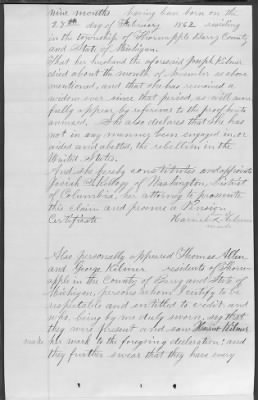 nine months having been born on the
27th day of February 1862 residing
in the township of Thornapple Barry County
and State of Michigan.
That her husband the aforesaid Joseph Kilmer
died about the month of December as above
mentioned, and that she has remained a
widow ever since that period, as will more
fully appear by reference to the proof hereto
annexed. She also declares that she has
not in any manner been engaged in or
aided and abetted, the rebellion in the
United States.
And she hereby constitutes and appoints
Josiah of Washington, District
of Columbia, her attorney to prosecute
this claim and procure a Pension
Certificate Harriet Kilmer
mark
Also personally appeared Thomas Allen
and George Kilmer residents of Thorn-
apple in the County of Barry and State of
Michigan, persons whom I certify to be
respectable and entitled to credit, and
who, being by me duly sworn, say that
they were present and saw Harriet Kilmer
make her mark to the foregoing declaration; and
they further swear that they have every